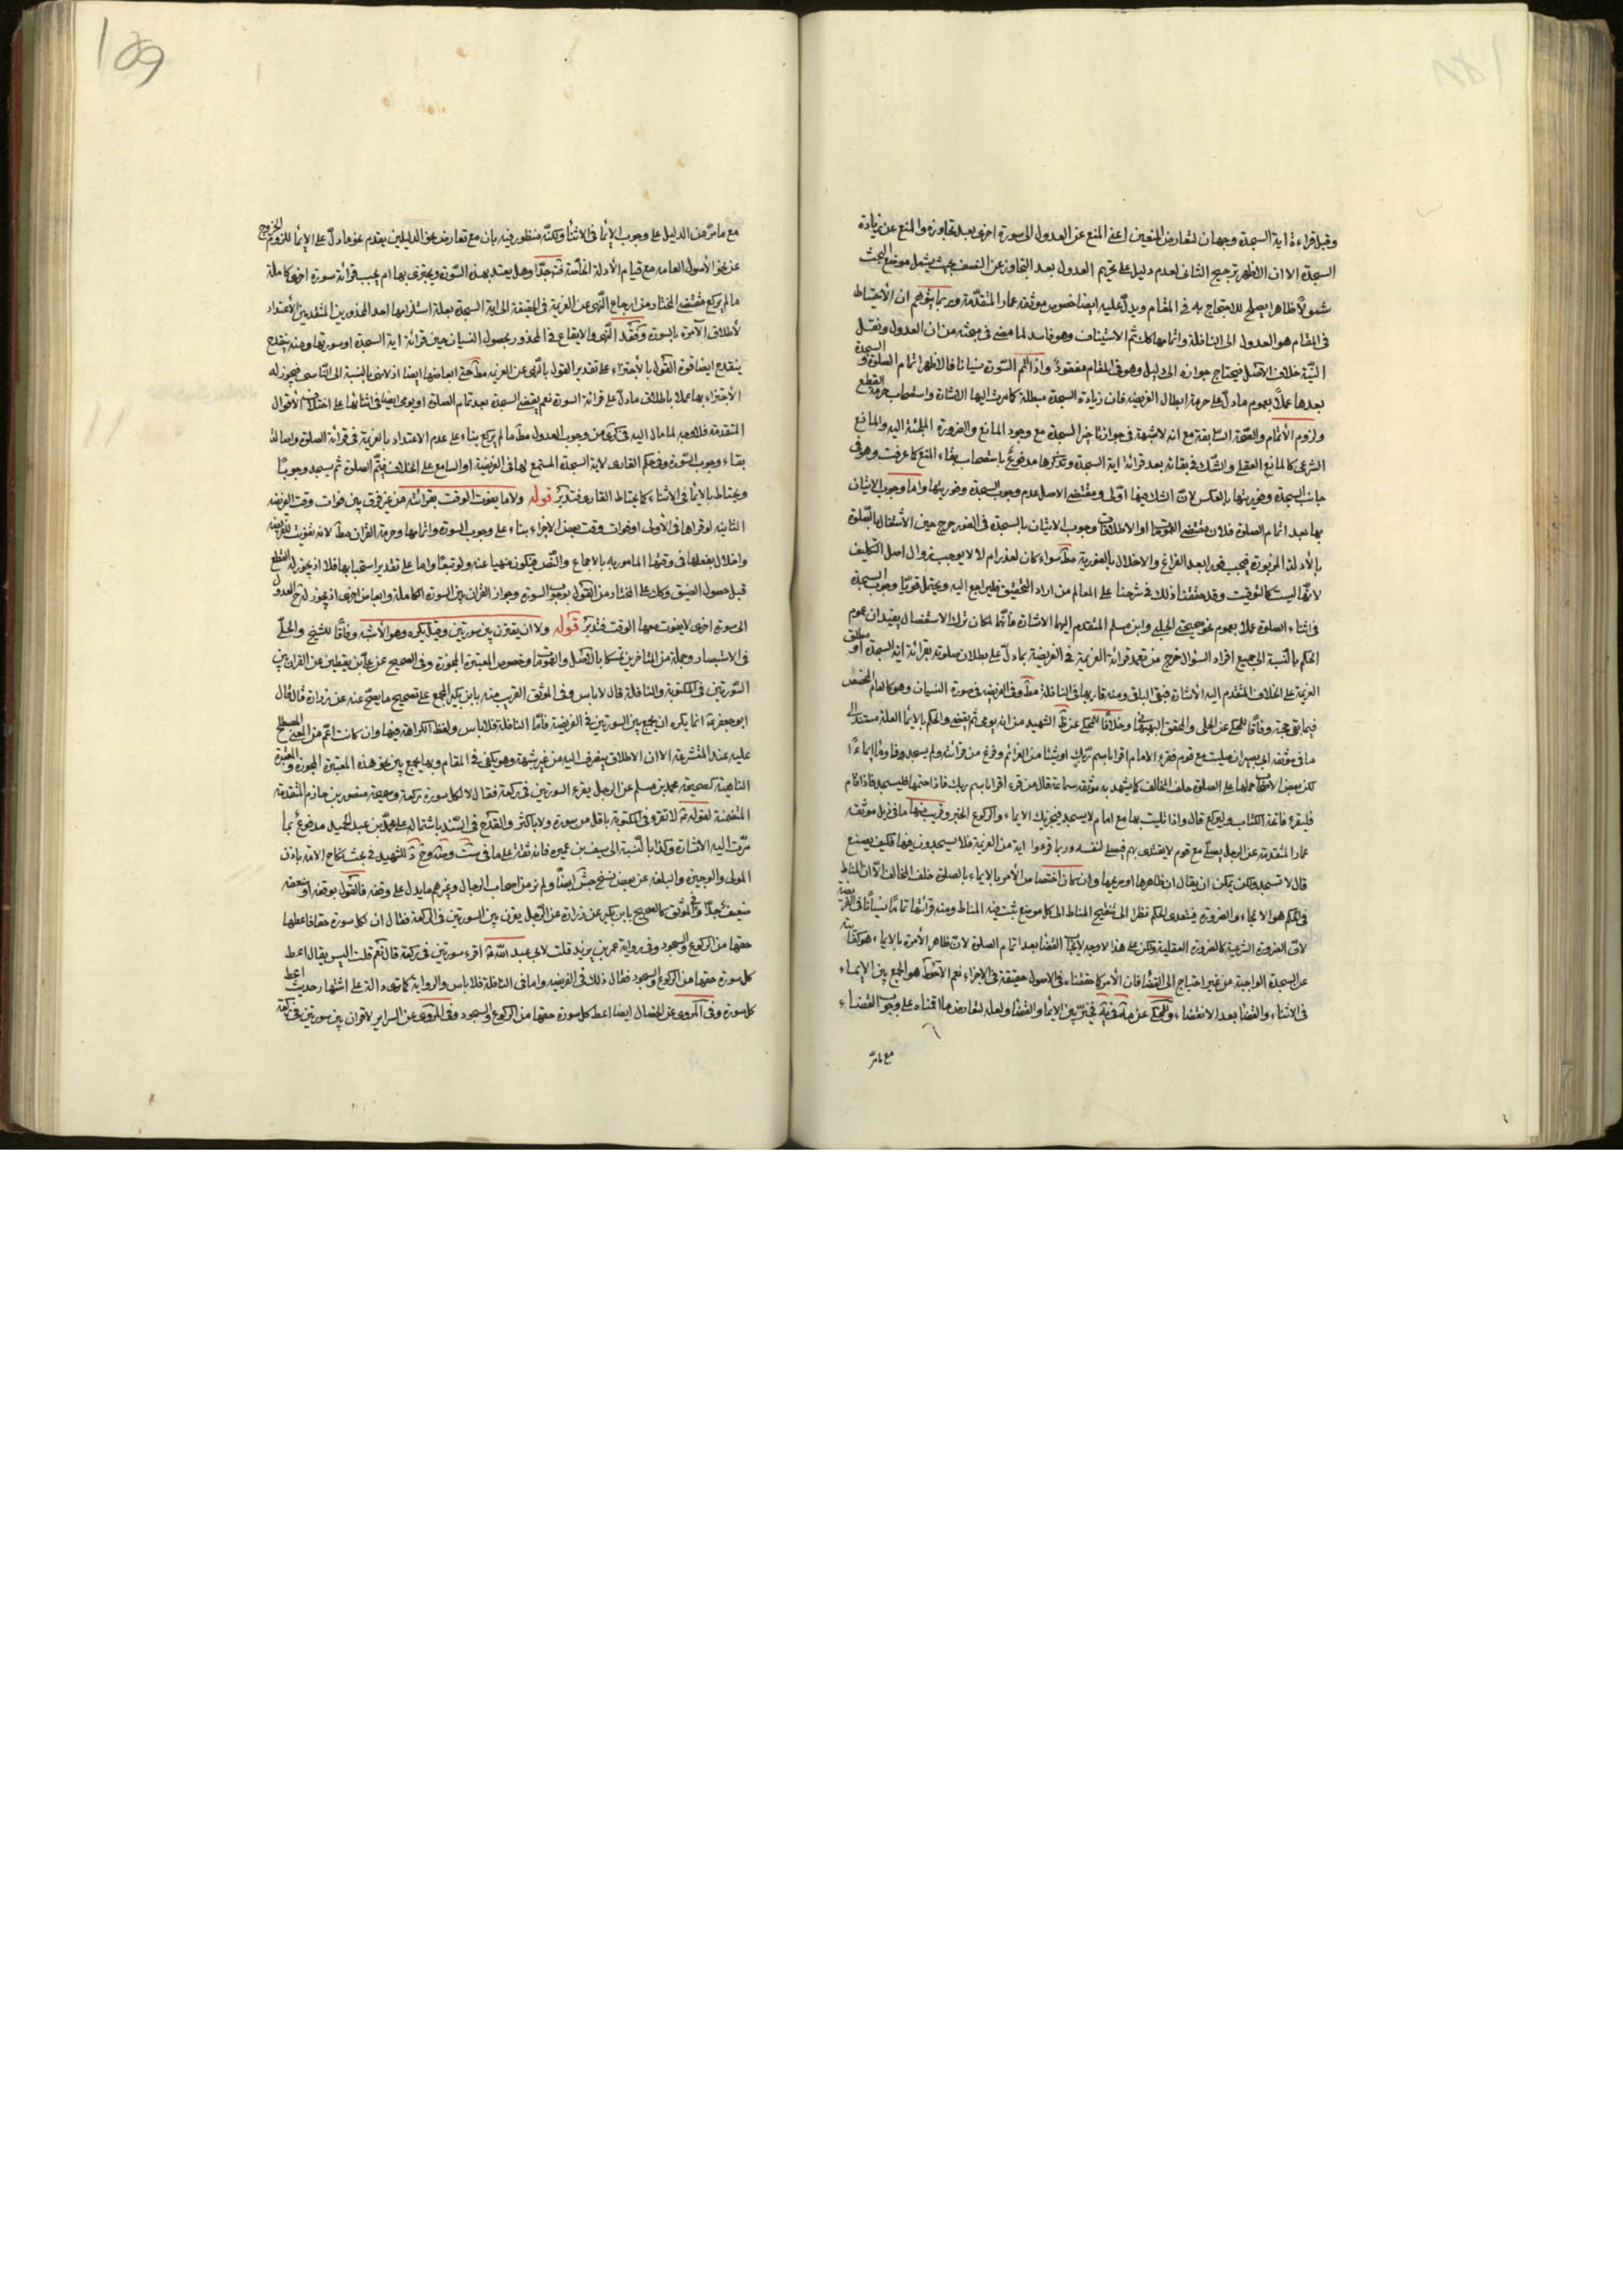 وقبل قراءة اية السجدة وجهان لتعارض المنعين اعنى المنع عن العدول الى سورة اخرى بعد تجاوز والمنع عن زيادة
السجدة الا ان الاظهر ترجيح الثانى لعدم دليل على تحريم العدول بعد التجاوز عن النصف بحيث يشمل موضع البحث
شمولا ظاهرا يصلح للاحتجاج به فى المقام ويدل عليه ايضا خصوص موثقة عمار المتقدمة وربما يتوهم ان الاحتياط
فى المقام هو العدول الى النافلة واتمامها كك ثم الاستيناف وهو فاسد لما مضى فى مبحثه من ان العدول ونقل
النية خلاف الاصل فيحتاج جوازه الى دليل وهو فى المقام مفقود واذا اتم السورة نسيانا فالاظهر اتمام الصلوة و السجدة
بعدها عملا بعموم ما دل على حرمة ابطال الفريضة فان زيادة السجدة مبطلة كما مرت اليها الاشارة واستصحاب حرمة القطع
ولزوم الاتمام والصحة السابقة مع انه لا شبهة فى جواز تاخير السجدة مع وجود المانع والضرورة الملجئة اليه والمانع
الشرعى كالمانع العقلى والشك فى بقائه بعد قرائة اية السجدة وتذكرها مدفوع باستصحاب بقاء المنع كما عرفت وهو فى
جانب السجدة وفوريتها بالعكس لان الشك فيها اولى ومقتضى الاصل عدم وجوب السجدة وفوريتها واما وجوب الاتيان
بها بعد اتمام الصلوة فلان مقتضى العمومات او الاطلاقات وجوب الاتيان بالسجدة فى الفور خرج حين الاشتغال بالصلوة
بالادلة المزبورة فيجب فورا بعد الفراغ والاخلال بالفورية مط سواء كان لعذر ام لا لا يوجب زوال اصل التكليف
لانها ليست كالتوقيت وقد حققنا ذلك فى شرحنا على المعالم من اراد التحقيق فليراجع اليه ويحتمل قويا وجوب السجدة
فى اثناء الصلوة عملا بعموم نحو صحيحتى الحلبى وابن مسلم المتقدم اليهما الاشارة فانهما لمكان ترك الاستفصال يفيدان عموم
الحكم بالنسبة الى جميع افراد السؤال خرج من تعمد قرائة العزيمة فى الفريضة بما دل على بطلان صلوته بقرائة اية السجدة او مطلق
العزيمة على الخلاف المتقدم اليه الاشارة فبقى الباقى ومنه قاريها فى النافلة مط وفى الفريضة فى صورة النسيان وهو كالعام المخصص
فيما بقى حجة وفاقا للمحكى عن الحلى والمحقق البهبهانى وخلافا للمحكى عن ظ الشهيد من انه يومى ثم يقضى والحكم بالايما لعله مستند الى
ما فى موثقة ابى بصير ان صليت مع قوم فقرء الامام اقرا باسم ربك او شيئا من العزائم وفرغ من قرائته ولم يسجد فاوم ايماءً
لكن بعض الاصحاب حملها على الصلوة خلف المخالف كما يشهد به موثقة سماعة قال من قرء اقرا باسم ربك فاذا ختمها فليسجد فاذا قام
فليقرء فاتحة الكتاب وليركع قال واذا ابتليت بها مع امام لا يسجد فيجزيك الايماء والركوع الخبر وقريب منها ما فى ذيل موثقة
عمار المتقدمة عن الرجل يصلى مع قوم لا يقتدى بهم فيصلى لنفسه وربما قرءوا اية من العزيمة فلا يسجدون فيها فكيف يصنع
قال لا تسجد ولكن يمكن ان يقال ان ظاهرها او صريحها وان كان اختصاص الامر بالايماء بالصلوة خلف المخالف الا ان المناط
فى الحكم هو الالجاء والضرورة فيتعدى الحكم نظرا الى تنقيح المناط الى كل موضع ثبت فيه المناط ومنه قرائتها تماما نسيانا فى الفريضة
لان الضرورة الشرعية كالضرورة العقلية ولكن على هذا لا وجه لايجاب القضا بعد اتمام الصلوة لان ظاهر الامرة بالايماء هو كفايته
عن السجدة الواجبة من غير احتياج الى القضا فان الامر كما حققناه فى الاصول حقيقة فى الاجزاء نعم الاحوط هو الجمع بين الايماء
فى الاثناء والقضا بعد الانقضاء والمحكى عن التخيير بين الايما والقضا ولعله لتعارض ما اقمناه على وجوب القضاء
مع ما مرّ
١٥٩
مع ما مر من الدليل على وجوب الايما فى الاثنا ولكنه منظور فيه بان مع تعارض نحو الدليلين يقدم نحو ما دل على الايما للزوم الخروج
عن نحو الاصول العامة مع قيام الادلة الخاصة فت جدا وهل يعتد بهذه السورة ويجتزى بها ام يجب قرائة سورة اخرى كاملة
ما لم يركع مقتضى المختار من ارجاع النهى عن العزيمة فى الحقيقة الى اية السجدة بعلة استلزامها احد المحذورين المتقدمين الاعتداد
لاطلاق الامرة بالسورة وفقد النهى والايقاع فى المحذور بحصول النسيان حين قرائة اية السجدة او سورتها ومنه ينقدح
ينقدح ايضا قوة القول بالاجتزاء على تقدير القول بالنهى عن العزيمة مط حتى ابعاضها ايضا اذ لا نهى بالنسبة الى الناسى فيجوز له
الاجتزاء بها عملا باطلاق ما دل على قرائة السورة نعم يقضى السجدة بعد تمام الصلوة او يومى ايضا فى اثنائها على اختلاف الاقوال
المتقدمة فلا وجه لما مال اليه فى كرى من وجوب العدول مط ما لم يركع بناء على عدم الاعتداد بالعزيمة فى قرائة الصلوة واصالة
بقاء وجوب السورة وفى حكم القارى لاية السجدة المستمع لها فى الفريضة او السامع على الخلاف فيتم الصلوة ثم يسجد وجوبا
ويحتاط بالايما فى الاثناء كما يحتاط القارى فتدبر قوله ولا ما يفوت الوقت بقرائته من غير فرق بين فوات وقت الفريضة
الثانية لو قراها فى الاولى او فوات وقت بعض الاجزاء بناء على وجوب السورة واتمامها وحرمة القران مط لانه تفويت للفريضة
واخلال بفعلها فى وقتها المامور به بالاجماع والنص فيكون منهيا عنه ولو تبعا واما على تقدير استحبابها فلا اذ يجوز له القطع
قبل حصول الضيق وكك على المختار من القول بوجوب السورة وجواز القران بين السورة الكاملة وابعاض اخرى اذ يجوز له ح العدول
الى سورة اخرى لا يفوت معها الوقت فتدبر قوله ولا ان يقترن بين سورتين وقيل يكره وهو الاشبه وفاقا للشيخ والحلى
فى الاستبصار وجملة من المتاخرين تمسكا بالاصل والعمومات وخصوص المعتبرة المجوزة وفى الصحيح عن على بن يقطين عن القران بين
السورتين فى المكتوبة والنافلة قال لا باس وفى الموثق القريب منه بابن بكير المجمع على تصحيح ما يصح عنه عن زرارة قال قال
ابو جعفر ع انما يكره ان يجمع بين السورتين فى الفريضة فاما النافلة فلا باس ولفظ الكراهة فيها وان كانت اعم من المعنى المصطلح
عليه عند المتشرعة الا ان الاطلاق ينصرف اليه من غير شبهة وهو يكفى فى المقام وبها يجمع بين نحو هذه المعتبرة المجوزة والمعتبرة
الناهية كصحيحة محمد بن مسلم عن الرجل يقرء السورتين فى ركعة فقال لا لكل سورة ركعة وصحيحة منصور بن حازم المتقدمة
المتضمنة لقوله ع لا تقرء فى المكتوبة باقل من سورة ولا باكثر والقدح فى السند باشتماله على محمد بن عبد الحميد مدفوع بما
مرت اليه الاشارة وكذا بالنسبة الى سيف بن عميره فانه ثقة على ما فى للشهيد فى بحث نكاح الامة باذن
المولى والوجيزة والبلغة عن بعض نسخ جش ايضا ولم نر من اصحاب الرجال وغيرهم ما يدل على وقفه فالقول بوقفه او ضعفه
ضعيف جدا وفى الموثق كالصحيح بابن بكير عن زرارة عن الرجل يقرن بين السورتين فى الركعة فقال ان لكل سورة حقا فاعطها
حقها من الركوع والسجود وفى رواية عمر بن يزيد قلت لابى عبد الله ع اقرء سورتين فى ركعة قال نعم قلت اليس يقال اعط
كل سورة حقها من الركوع والسجود فقال ذلك فى الفريضة واما فى النافلة فلا باس والرواية كما ترى دالة على اشتهار حديث اعط
كل سورة وفى المروى عن الخصال ايضا اعط كل سورة حقها من الركوع والسجود وفى المروى عن السراير لا قران بين سورتين فى ركعة